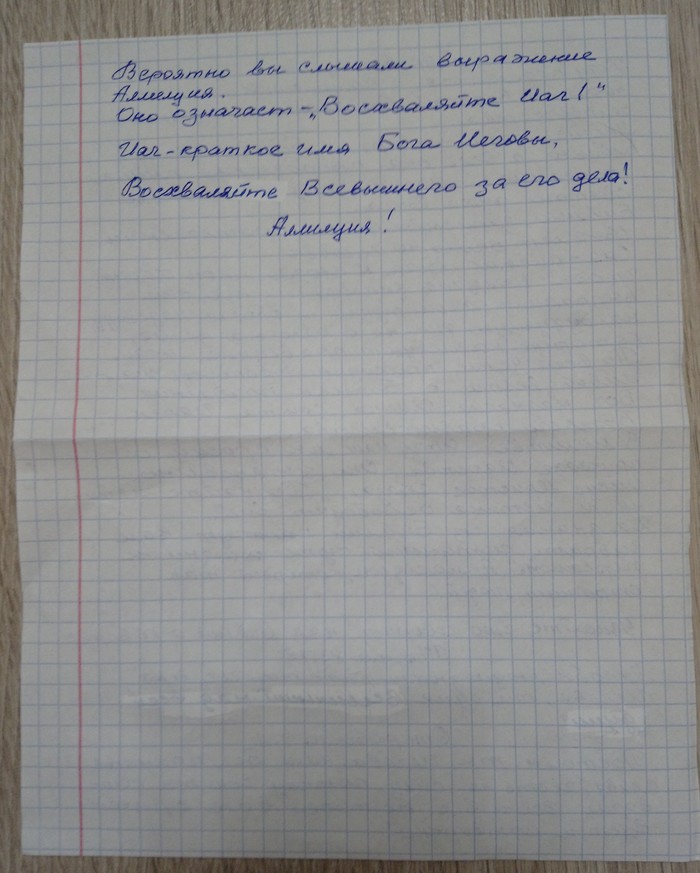 Вероятно вы слышали выражение
Аллилуия.
Оно означает - „Восхваляйте Иаг!"
Иаг - краткое имя Бога Иеговы,
Восхваляйте Всевышнего за его дела!
Аллилуия!